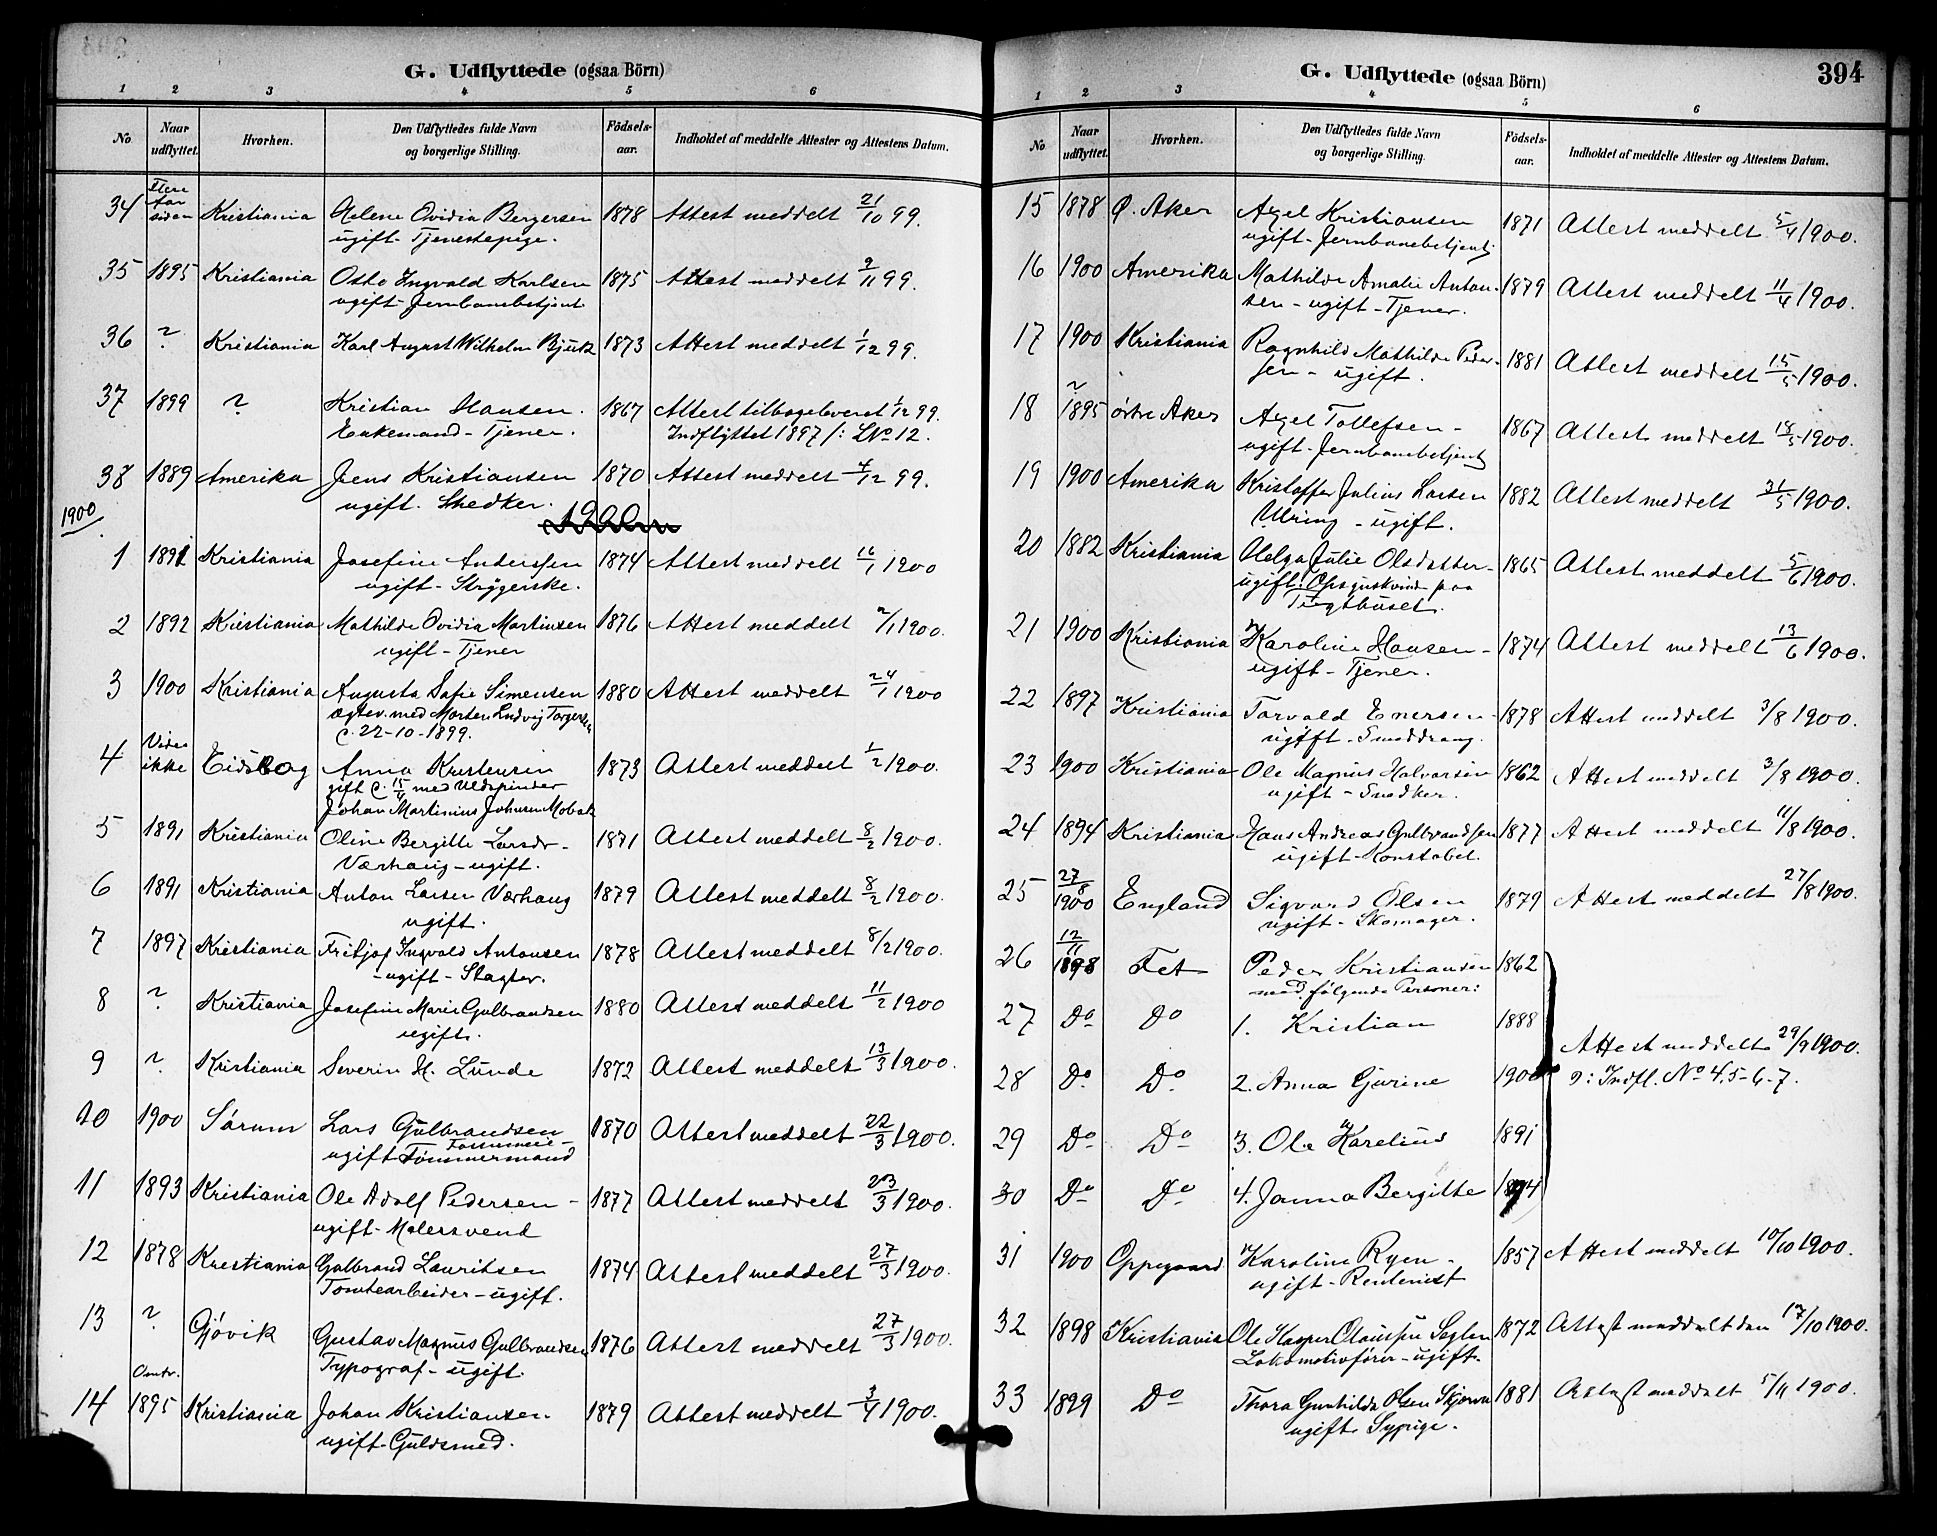 G. Udflyttede (ogsaa Börn)
1 2 3 4 5 6
No Naar udflyttet. Hvorhen. Den Udflyttedes fulde Navn og borgerlige Stilling. Födsels-aar. Indholdet af meddelte Attester og Attestens Datum.
34 Flere Aar siden Kristiania Helene Ovidia Bergersen 1878 Attest meddelt 21/10 99.
ugift - Tjenestepige.
35 1895 Kristiania Otto Ingvald Karlsen 1875 Attest meddelt 9/11 99.
ugift - Jernbanebetjent
36 ? Kristiania Karl August Wilhelm Bjurk 1873 Attest meddelt 1/12 99.
37 1899 ? Kristian Hansen. 1867 Attest tilbageleveret 1/12 99.
Enkemand - Tjener. Indflyttet 1897 /: LNo 12.
38 1889 Amerika Jens Kristiansen 1870 Attest meddelt 4/12 99.
ugift. Snedker.
1900
1 1891 Kristiania Josefine Anderssen 1874 Attest meddelt 16/1 1900
ugift - Strygerske.
2 1892 Kristiania Mathilde Ovidia Martinsen 1876 Attest meddelt /1 1900.
ugift - Tjener
3 1900 Kristiania Augusta Sofie Simensen 1880 Attest meddelt 24/1 1900
Ægtev. med Morten Ludvig Torgersen
C. 22-10-1899.
4 Vides ikke Eidsberg Anna Kristensen 1873 Attest meddelt 1/2 1900.
gift C. 15/4 med Uldspinder
Johan Martinius Johnsen Mobak
5 1891 Kristiania Oline Bergitte Larsdr - 1871 Attest meddelt 8/2 1900.
Værhaug - ugift.
6 1891 Kristiania Anton Larsen Værhaug 1879 Attest meddelt 8/2 1900.
ugift.
7 1897 Kristiania Fritjof Ingvald Antonsen 1878 Attest meddelt 8/2 1900.
- ugift - Slagter.
8 ? Kristiania Josefine Marie Gulbrandsen 1880 Attest meddelt 11/2 1900
ugift.
9 ? Kristiania Severin H. Lunde 1872 Attest meddelt 13/3 1900.
10 1900 Sörum Lars Gulbrandsen 1870 Attest meddelt 22/3 1900.
Fossumeie -
ugift Tömmermand
11 1893 Kristiania Ole Adolf Pedersen - 1877 Attest meddelt 23/3 1900.
ugift - Malersvend
12 1878 Kristiania Gulbrand Lauritsen 1874 Attest meddelt 27/3 1900.
Tomtearbeider - ugift.
13 ? Gjövik Gustav Magnus Gulbrandsen 1876 Attest meddelt 27/3 1900.
Typograf - ugift.
14 Omtr. 1895 Kristiania Johan Kristiansen. 1879 Attest meddelt 3/4 1900.
ugift - Guldsmed.
G. Udflyttede (ogsaa Börn)
394
1 2 3 4 5 6
No Naar udflyttet. Hvorhen. Den Udflyttedes fulde Navn og borgerlige Stilling. Födsels-aar. Indholdet af meddelte Attester og Attestens Datum.
15 1878 Ø. Aker Axel Kristiansen 1871 Attest meddelt 5/4 1900.
ugift - Jernbanebetjent
16 1900 Amerika Mathilde Amalie Anton- 1879 Attest meddelt 11/4 1900.
sen - ugift - Tjener.
17 1900 Kristiania Ragnhild Mathilde Peder- 1881 Attest meddelt 15/5 1900.
sen - ugift.
18 ? 1895 östre Aker Axel Tollefsen - 1867 Attest meddelt 18/5 1900.
ugift - Jernbanebetjent
19 1900 Amerika Kristoffer Julius Larsen 1882 Attest meddelt 31/5 1900.
Ulring - ugift.
20 1882 Kristiania Helga Julie Olsdatter - 1865 Attest meddelt 5/6 1900.
ugift: Opsynskvinde paa
Tugthuset.
21 1900 Kristiania Karoline Hansen - 1874 Attest meddelt 13/6 1900.
ugift - Tjener.
22 1897 Kristiania Torvald Enersen - 1878 Attest meddelt 3/8 1900.
ugift - Smeddreng.
23 1900 Kristiania Ole Magnus Halvorsen 1862 Attest meddelt 3/8 1900.
ugift - Snedker.
24 1894 Kristiania Hans Andreas Gulbrandsen 1877 Attest meddelt 11/8 1900.
ugift - Konstabel.
25 27/8 1900 England Sigvard Olsen 1879 Attest meddelt 27/8 1900.
ugift - Skomager.
26 12/11 1898 Fet Peder Kristiansen 1862
med følgende Personer:
27 Do Do 1. Kristian 1888
Attest meddelt 29/9 1900.
28 Do Do 2. Anna Gurine 1900 ɔ: Indfl. No 4.5-6-7.
29 Do Do 3. Ole Karelius 1891
30 Do Do 4. Janna Bergitte 1894
31 1900 Oppegaard Karoline Ryen - 1857 Attest meddelt 10/10 1900.
ugift - Rentenist
32 1898 Kristiania Ole Kasper Olaussen Seglen 1872 Attest meddelt den 17/10 1900.
Lokomotivfører - ugift.
33 1899 Do Thora Gunhilda Olsen 1881 Attest meddelt 5/11 1900.
ugift Sypige.